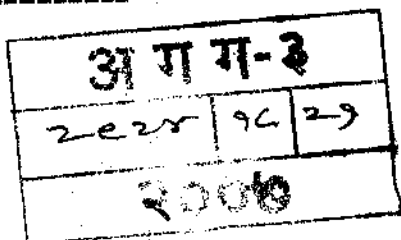 अ ग ग-३
२९२४ १८ २७
२००७